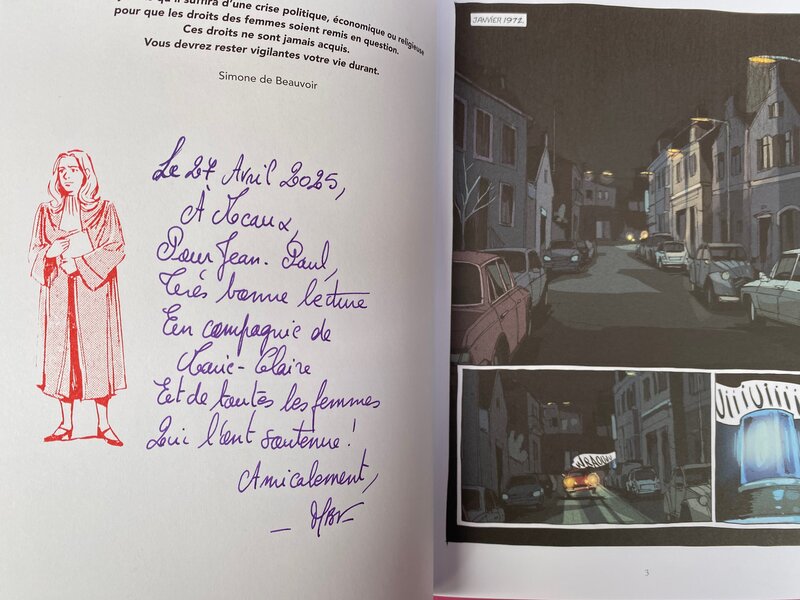 qu'il suffira d'une crise politique, économique ou religieuse
pour que les droits des femmes soient remis en question.
Ces droits ne sont jamais acquis.
Vous devrez rester vigilantes votre vie durant.
Simone de Beauvoir
Le 27 Avril 2025,
À Meaux,
Pour Jean-Paul,
Très bonne lecture
En compagnie de
Marie-Claire
Et de toutes les femmes
Qui l'ont soutenue !
Amicalement,
JANVIER 1972.
VRAOOW
UiiiUiiii
3